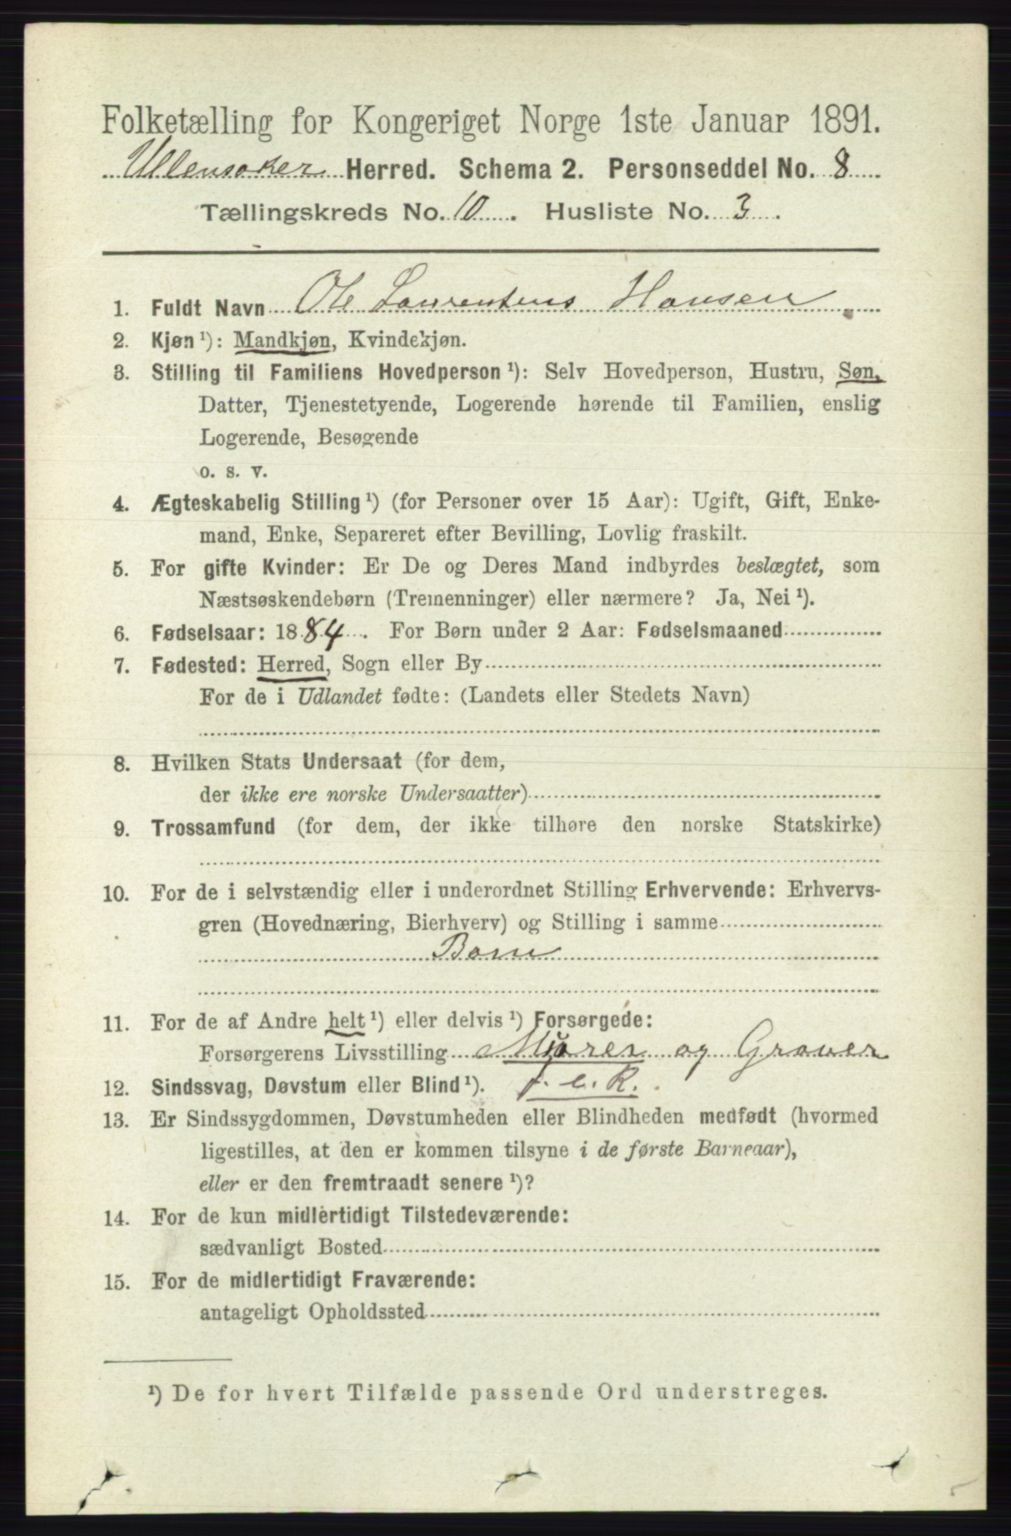 Folketælling for Kongeriget Norge 1ste Januar 1891.
Ullensaker Herred. Schema 2. Personseddel No. 8
Tællingskreds No. 10. Husliste No. 3.
1. Fuldt Navn Ole Laurentius Hansen
2. Kjøn ¹): Mandkjøn, Kvindekjøn.
3. Stilling til Familiens Hovedperson ¹): Selv Hovedperson, Hustru, Søn,
Datter, Tjenestetyende, Logerende hørende til Familien, enslig
Logerende, Besøgende
o. s. v.
4. Ægteskabelig Stilling ¹) (for Personer over 15 Aar): Ugift, Gift, Enke-
mand, Enke, Separeret efter Bevilling, Lovlig fraskilt.
5. For gifte Kvinder: Er De og Deres Mand indbyrdes beslægtet, som
Næstsøskendebørn (Tremenninger) eller nærmere? Ja, Nei ¹).
6. Fødselsaar: 1884. For Børn under 2 Aar: Fødselsmaaned
7. Fødested: Herred, Sogn eller By
For de i Udlandet fødte: (Landets eller Stedets Navn)
8. Hvilken Stats Undersaat (for dem,
der ikke ere norske Undersaatter)
9. Trossamfund (for dem, der ikke tilhøre den norske Statskirke)
10. For de i selvstændig eller i underordnet Stilling Erhvervende: Erhvervs-
gren (Hovednæring, Bierhverv) og Stilling i samme
Barn
11. For de af Andre helt ¹) eller delvis ¹) Forsørgede:
Forsørgerens Livsstilling Murer og Graver
12. Sindssvag, Døvstum eller Blind ¹). f. e. R.
13. Er Sindssygdommen, Døvstumheden eller Blindheden medfødt (hvormed
ligestilles, at den er kommen tilsyne i de første Barneaar),
eller er den fremtraadt senere ¹)?
14. For de kun midlertidigt Tilstedeværende:
sædvanligt Bosted
15. For de midlertidigt Fraværende:
antageligt Opholdssted
¹) De for hvert Tilfælde passende Ord understreges.